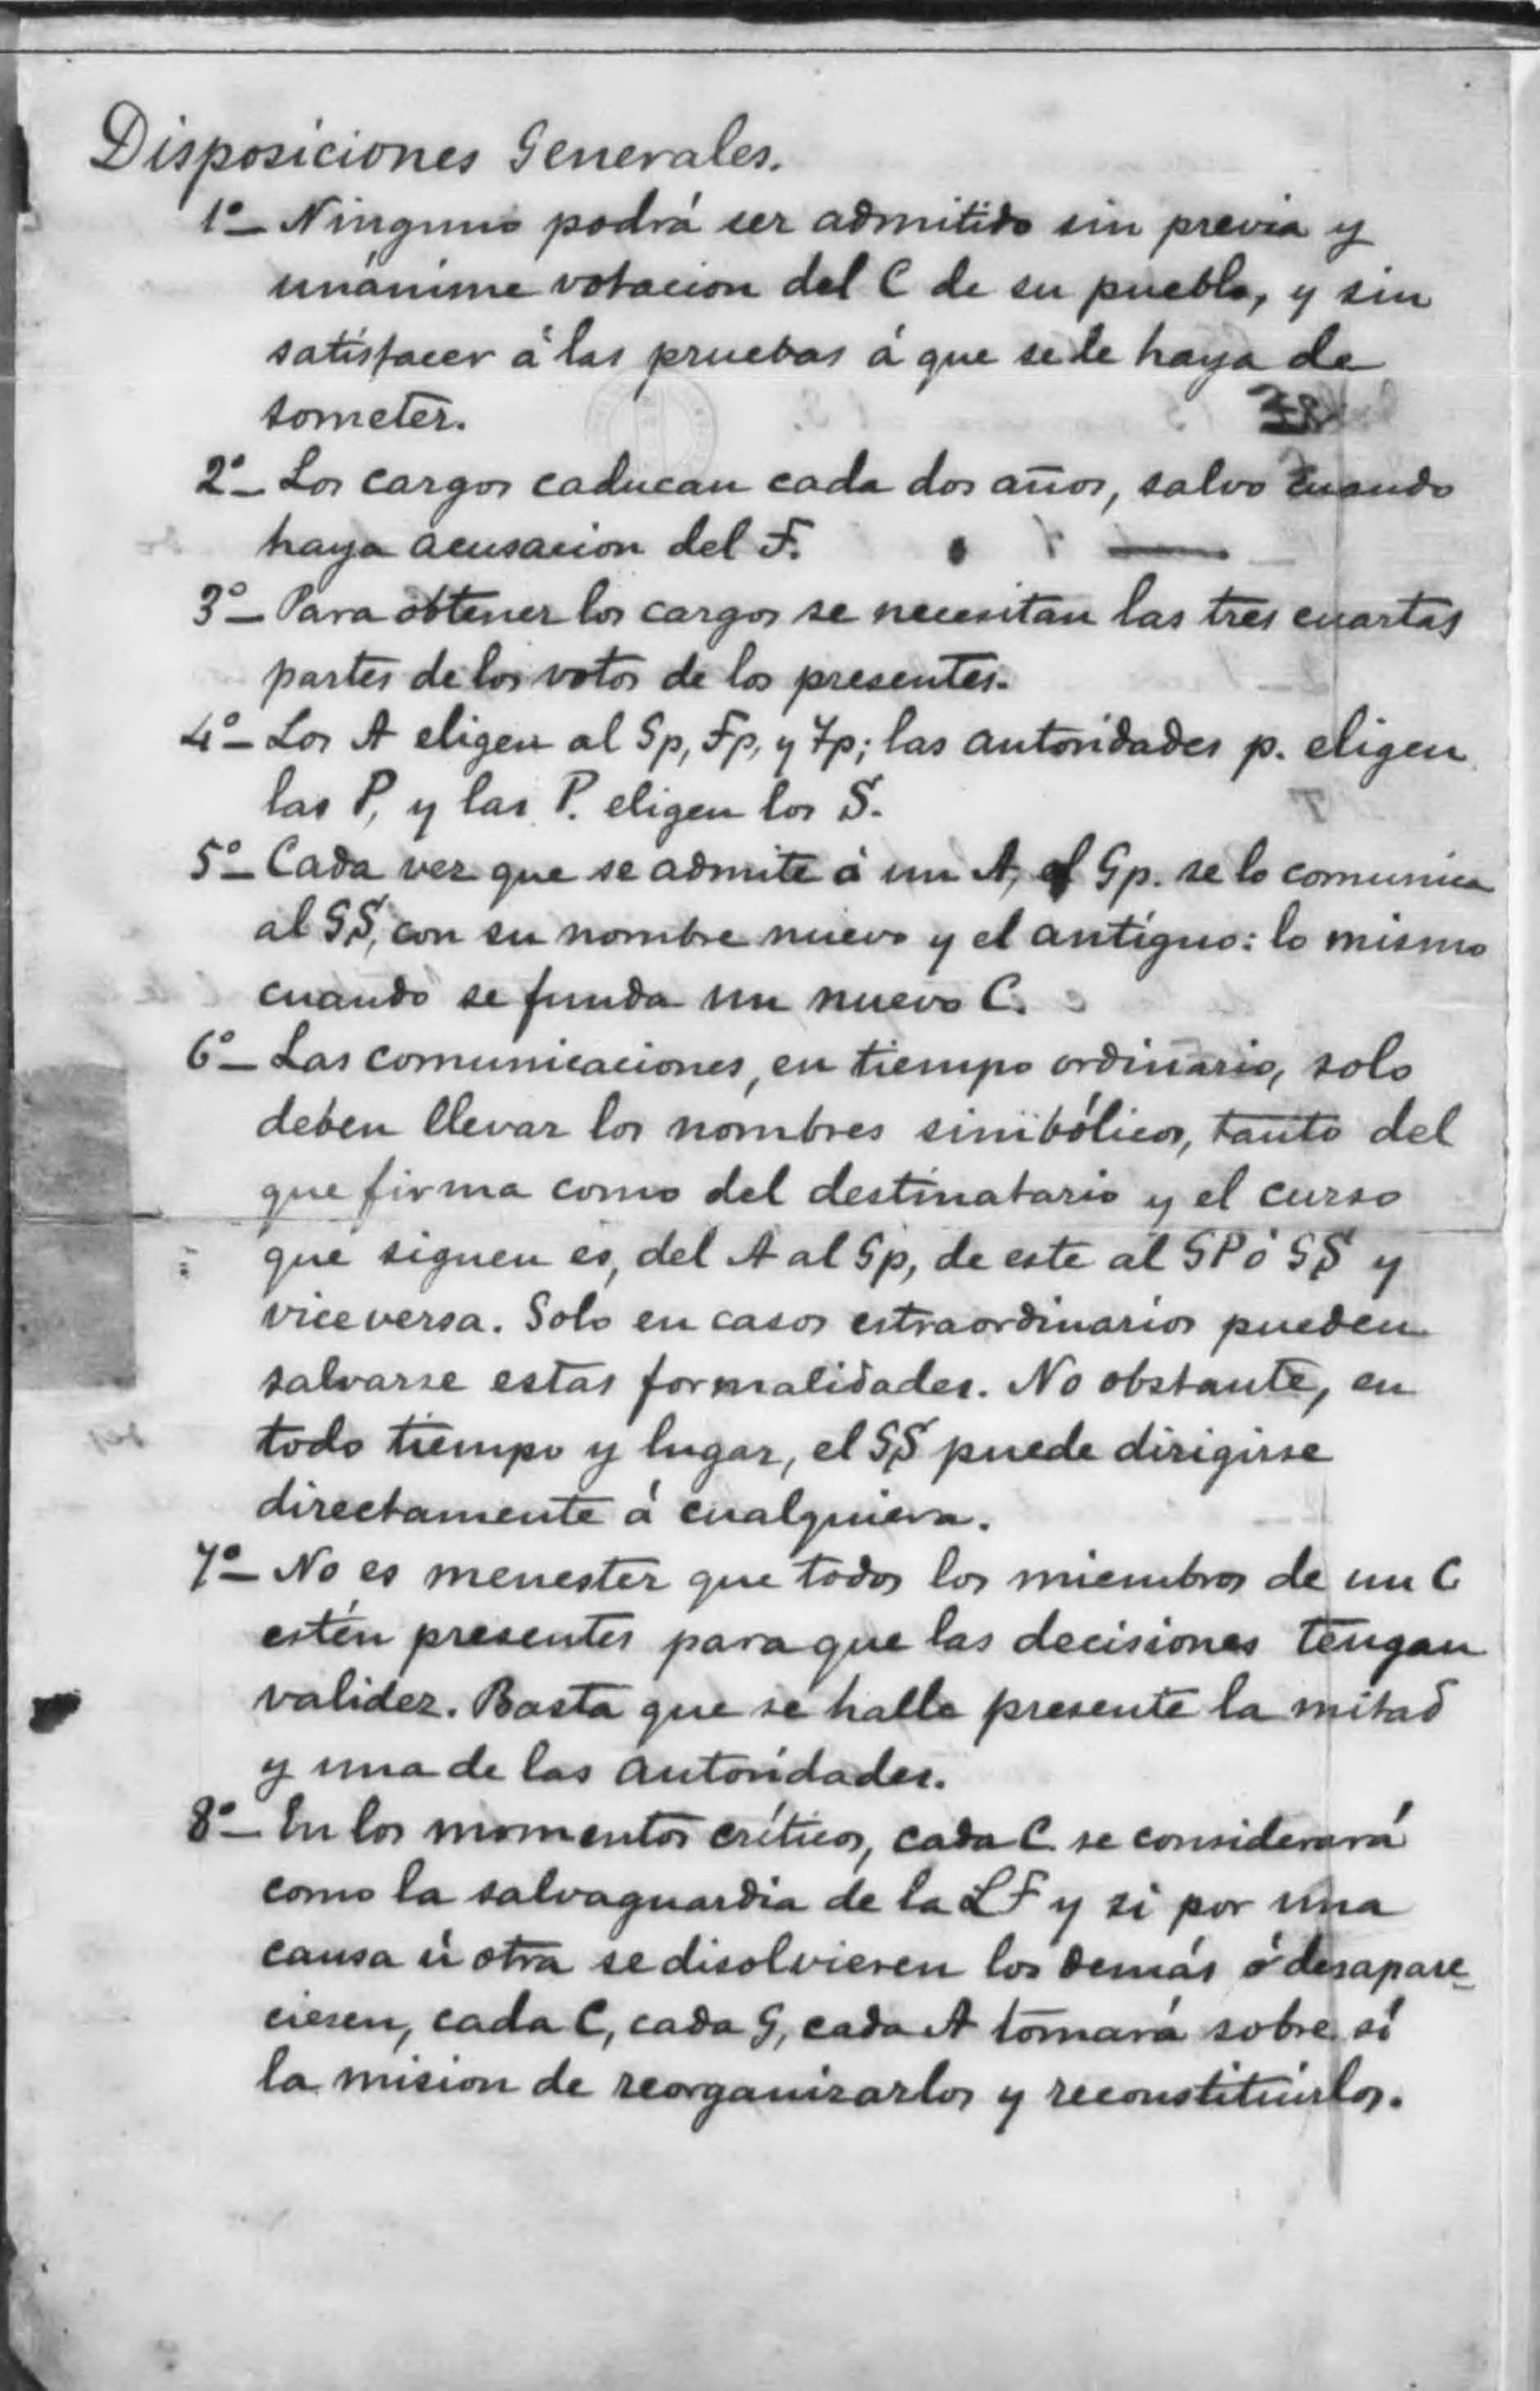 Disposiciones Generales.
1º— Ninguno podrá ser admitido sin previa y
unánime votacion del C de su pueblo, y sin
satisfacer á las pruebas á que se le haya de
someter.
2º— Los cargos caducan cada dos años, salvo cuando
haya acusacion del F.
3º— Para obtener los cargos se necesitan las tres cuartas
partes de los votos de los presentes.
4º— Los A eligen al Gp, Fp, y Tp; las autoridades p. eligen
las P, y las P. eligen los S.
5º— Cada vez que se admite á un A, el Gp. se lo comunica
al GS, con su nombre nuevo y el antíguo: lo mismo
cuando se funda un nuevo C.
6º— Las comunicaciones, en tiempo ordinario, solo
deben llevar los nombres simbólicos, tanto del
que firma como del destinatario y el curso
que siguen es, del A al Gp, de este al GP ó GS y
vice versa. Solo en casos estraordinarios pueden
salvarse estas formalidades. No obstante, en
todo tiempo y lugar, el GS puede dirigirse
directamente á cualquiera.
7º— No es menester que todos los miembros de un C
estén presentes para que las decisiones tengan
validez. Basta que se halle presente la mitad
y una de las autoridades.
8º— En los momentos críticos, cada C se considerará
como la salvaguardia de la LF y si por una
causa ú otra se disolvieren los demás ó desapare-
ciesen, cada C, cada G, cada A tomará sobre sí
la mision de reorganizarlos y reconstituirlos.